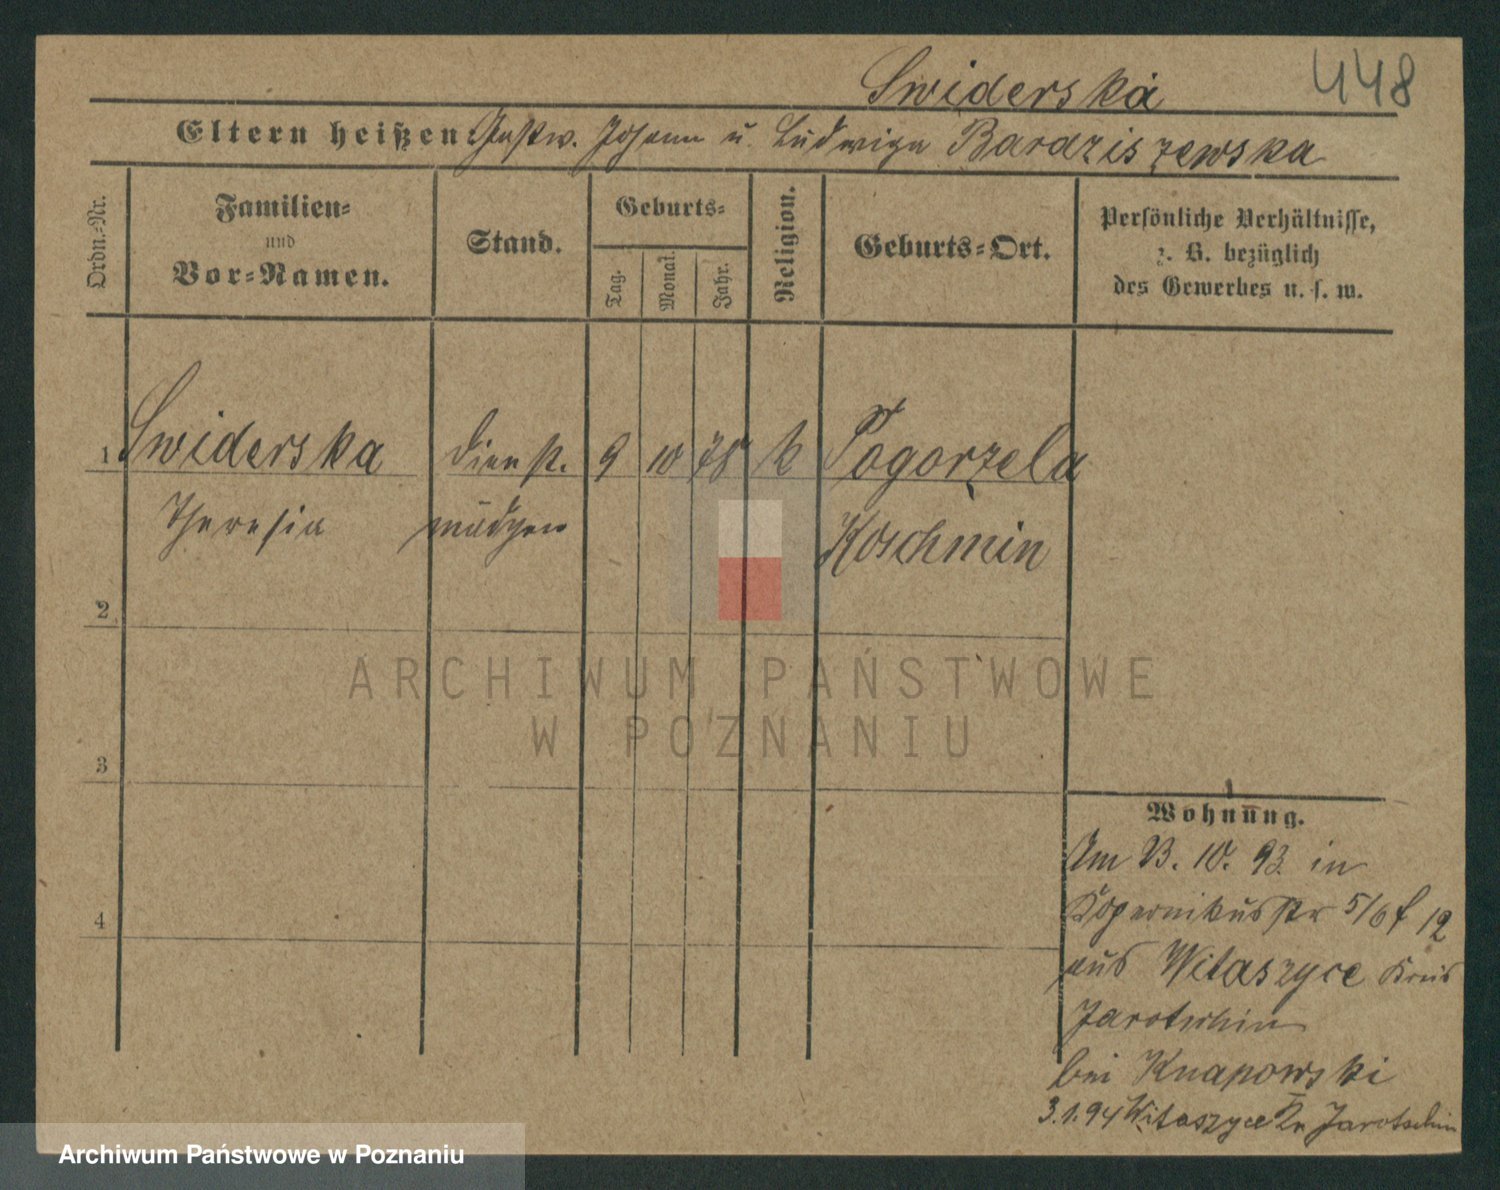 Swiderska 448
Eltern heißen: Gastw. Johann u. Ludwiga Bardziszewska
Ordn.-Nr.
Familien-
und
Vor-Namen.
Stand.
Geburts-
Tag.
Monat.
Jahr.
Religion.
Geburts-Ort.
Persönliche Verhältnisse,
z. B. bezüglich
des Gewerbes u. s. w.
1 Swiderska Dienst. 9 10 78 k Pogorzela
Theresia mädchen Koschmin
2
3
4
ARCHIWUM PAŃSTWOWE
W POZNANIU
Wohnung.
Am 3. 10. 93. in
Kopernikusstr 5/6 f 12
aus Witaszyce Kreis
Jarotschin
bei Knapowski
3.1.94 Witaszyce Kr. Jarotschin
Archiwum Państwowe w Poznaniu